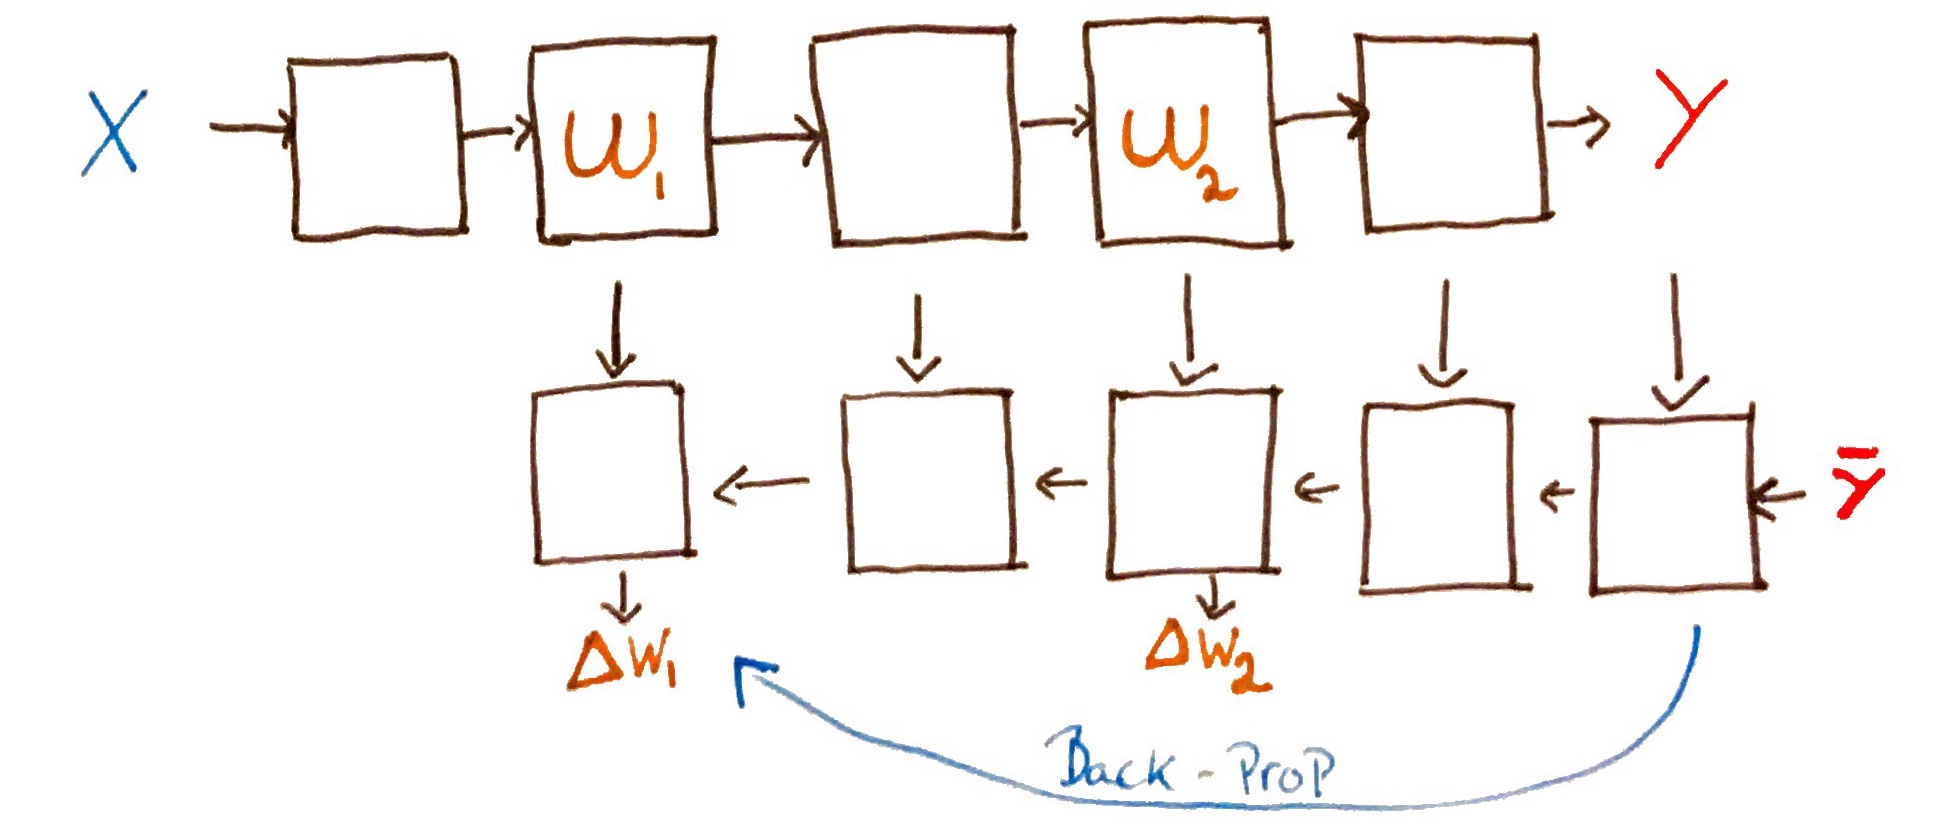 X W₁ W₂ Y
Ȳ
ΔW₁ ΔW₂
Back-Prop